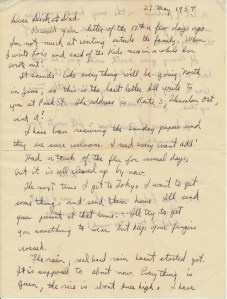 27 May 1957
Dear Dick & Dad.
Received your letter of the 17th a few days ago.
I'm not much at writing outside the family. When
I write Lois and each of the kids once in a while I'm
wrote out!
It sounds like everything will be going north
in June, so this is the last letter I'll write to
you at Park St. The address is Route 3,
is it?
I have been receiving the Sunday papers and
they are sure welcome. I read every want add!
Had a touch of the flu for several days,
but it is all cleared up by now.
The next time I get to Tokyo I want to get
some things and send them home. I'll send
your present at that time. I'll try to get
you something nice. But keep your fingers
crossed.
The rain, real hard rain hasn't started yet.
It is supposed to about now. Everything is
green, the rice is about knee high. I have